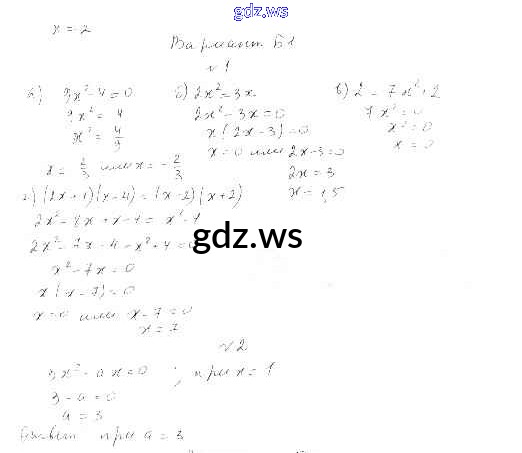 gdz.ws
x = -2
Вариант Б1
№1
а) 9x² - 4 = 0
9x² = 4
x² = 4/9
x = 2/3 или x = -2/3
б) 2x² = 3x
2x² - 3x = 0
x(2x - 3) = 0
x = 0 или 2x - 3 = 0
2x = 3
x = 1,5
в) 2 = 7x² + 2
7x² = 0
x² = 0
x = 0
г) (2x + 1)(x - 4) = (x - 2)(x + 2)
2x² - 8x + x - 4 = x² - 4
2x² - 7x - 4 - x² + 4 = 0
x² - 7x = 0
x(x - 7) = 0
x = 0 или x - 7 = 0
x = 7
gdz.ws
№2
3x² - ax = 0 ; при x = 1
3 - a = 0
a = 3
Ответ при a = 3